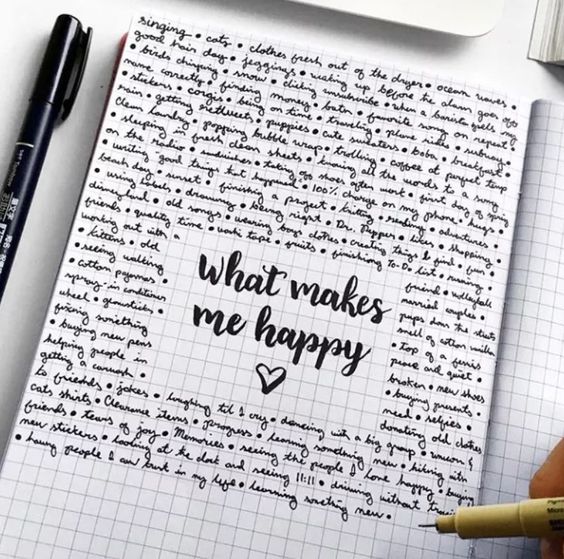 singing • cats • clothes fresh out of the dryer • ocean waves •
good hair day • jeggings • waking up before the alarm goes off
• birds chirping • snow • clicking unsubscribe • when a barista spells my
name correctly • finding money • bath • favorite song on repeat
• stickers • corgis • being on time • traveling • plane rides • subway •
rain • getting retweets • puppies • cute sweaters • boba • breakfast •
Clean laundry • popping bubble wrap • trolling • coffee at perfect temp
• sleeping in fresh clean sheets • knowing all the words to a song
on the radio • sandwiches • taking off shoes after work • first day of spring
• writing good things that happened • 100% charge on my phone • hugs •
beach day • sunset • finishing a project • knitting • reading • adventures
• using labels • drawing • being right • Dr. Pepper • likes • shopping •
disneyland • old songs • wearing boys clothes • creating things • find • fun
friends • quality time • washi tape • fruits • finishing to-do list • running •
working out with
friend • volleyball
• kittens • old
married couples •
• seeing walking
pups down the streets
• cotton pajamas
smell of cotton
spray-in conditioner
• top of a ferris
wheel • glowsticks
peace and quiet •
fixing something
broken • new shoes
• buying new pens
• buying presents •
helping people in
need • selfies •
getting a carwash •
donating old clothes
what makes
me happy
to friends • jokes • laughing til I cry • dancing with a big group • unicorn •
cats shirts • Clearance items • progress • learning something new • hiking with
friends • tears of joy • Memories • seeing the people I love happy • buying
new stickers • looking at the clock and seeing 11:11 • driving without traffic
• having people I can trust in my life • learning something new •